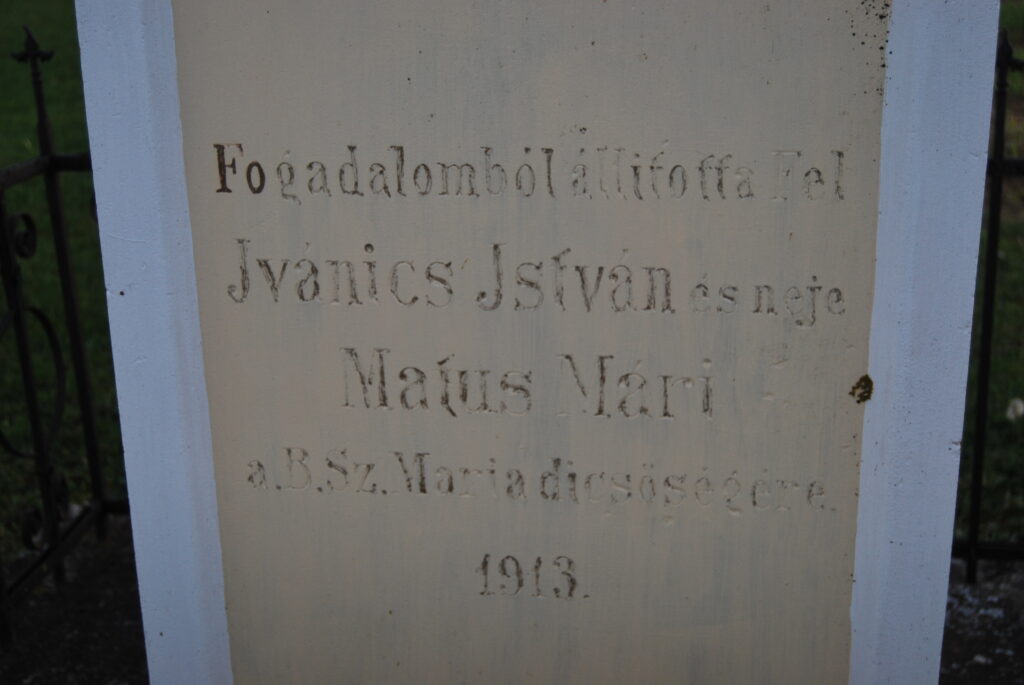 Fogadalomból állitotta Fel
Jvánics Jstván és neje
Matus Mári
a.B.Sz.Maria dicsöségére.
1913.